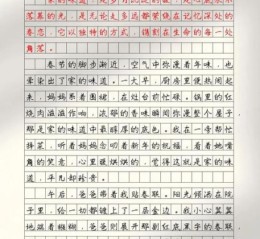 家的味道，是
落幕的光，是无论走多远都萦绕在记忆深处的
眷恋，它以独特的方式，镌刻在生命的每一处
角落。
春节的脚步渐近，空气中弥漫着年味，也
晕染出了家的味道。一大早，厨房里便热闹起
来，妈妈系着围裙，在灶台前忙碌。锅里的红
烧肉滋滋作响，浓郁的肉香瞬间弥漫整个屋子
那是家的味道中最醇厚的底色。我在一旁帮忙
择菜，听着妈妈念叨着新年的祝福，看着她嘴
角的笑意，心里暖烘烘的，觉得这就是家的味
道，平凡却珍贵。
午后，爸爸带着我贴春联。阳光倾洒在院
子里，给一切都镀上了一层金边。我小心翼翼
地端着糨糊，爸爸则展开那副红底墨字的春联